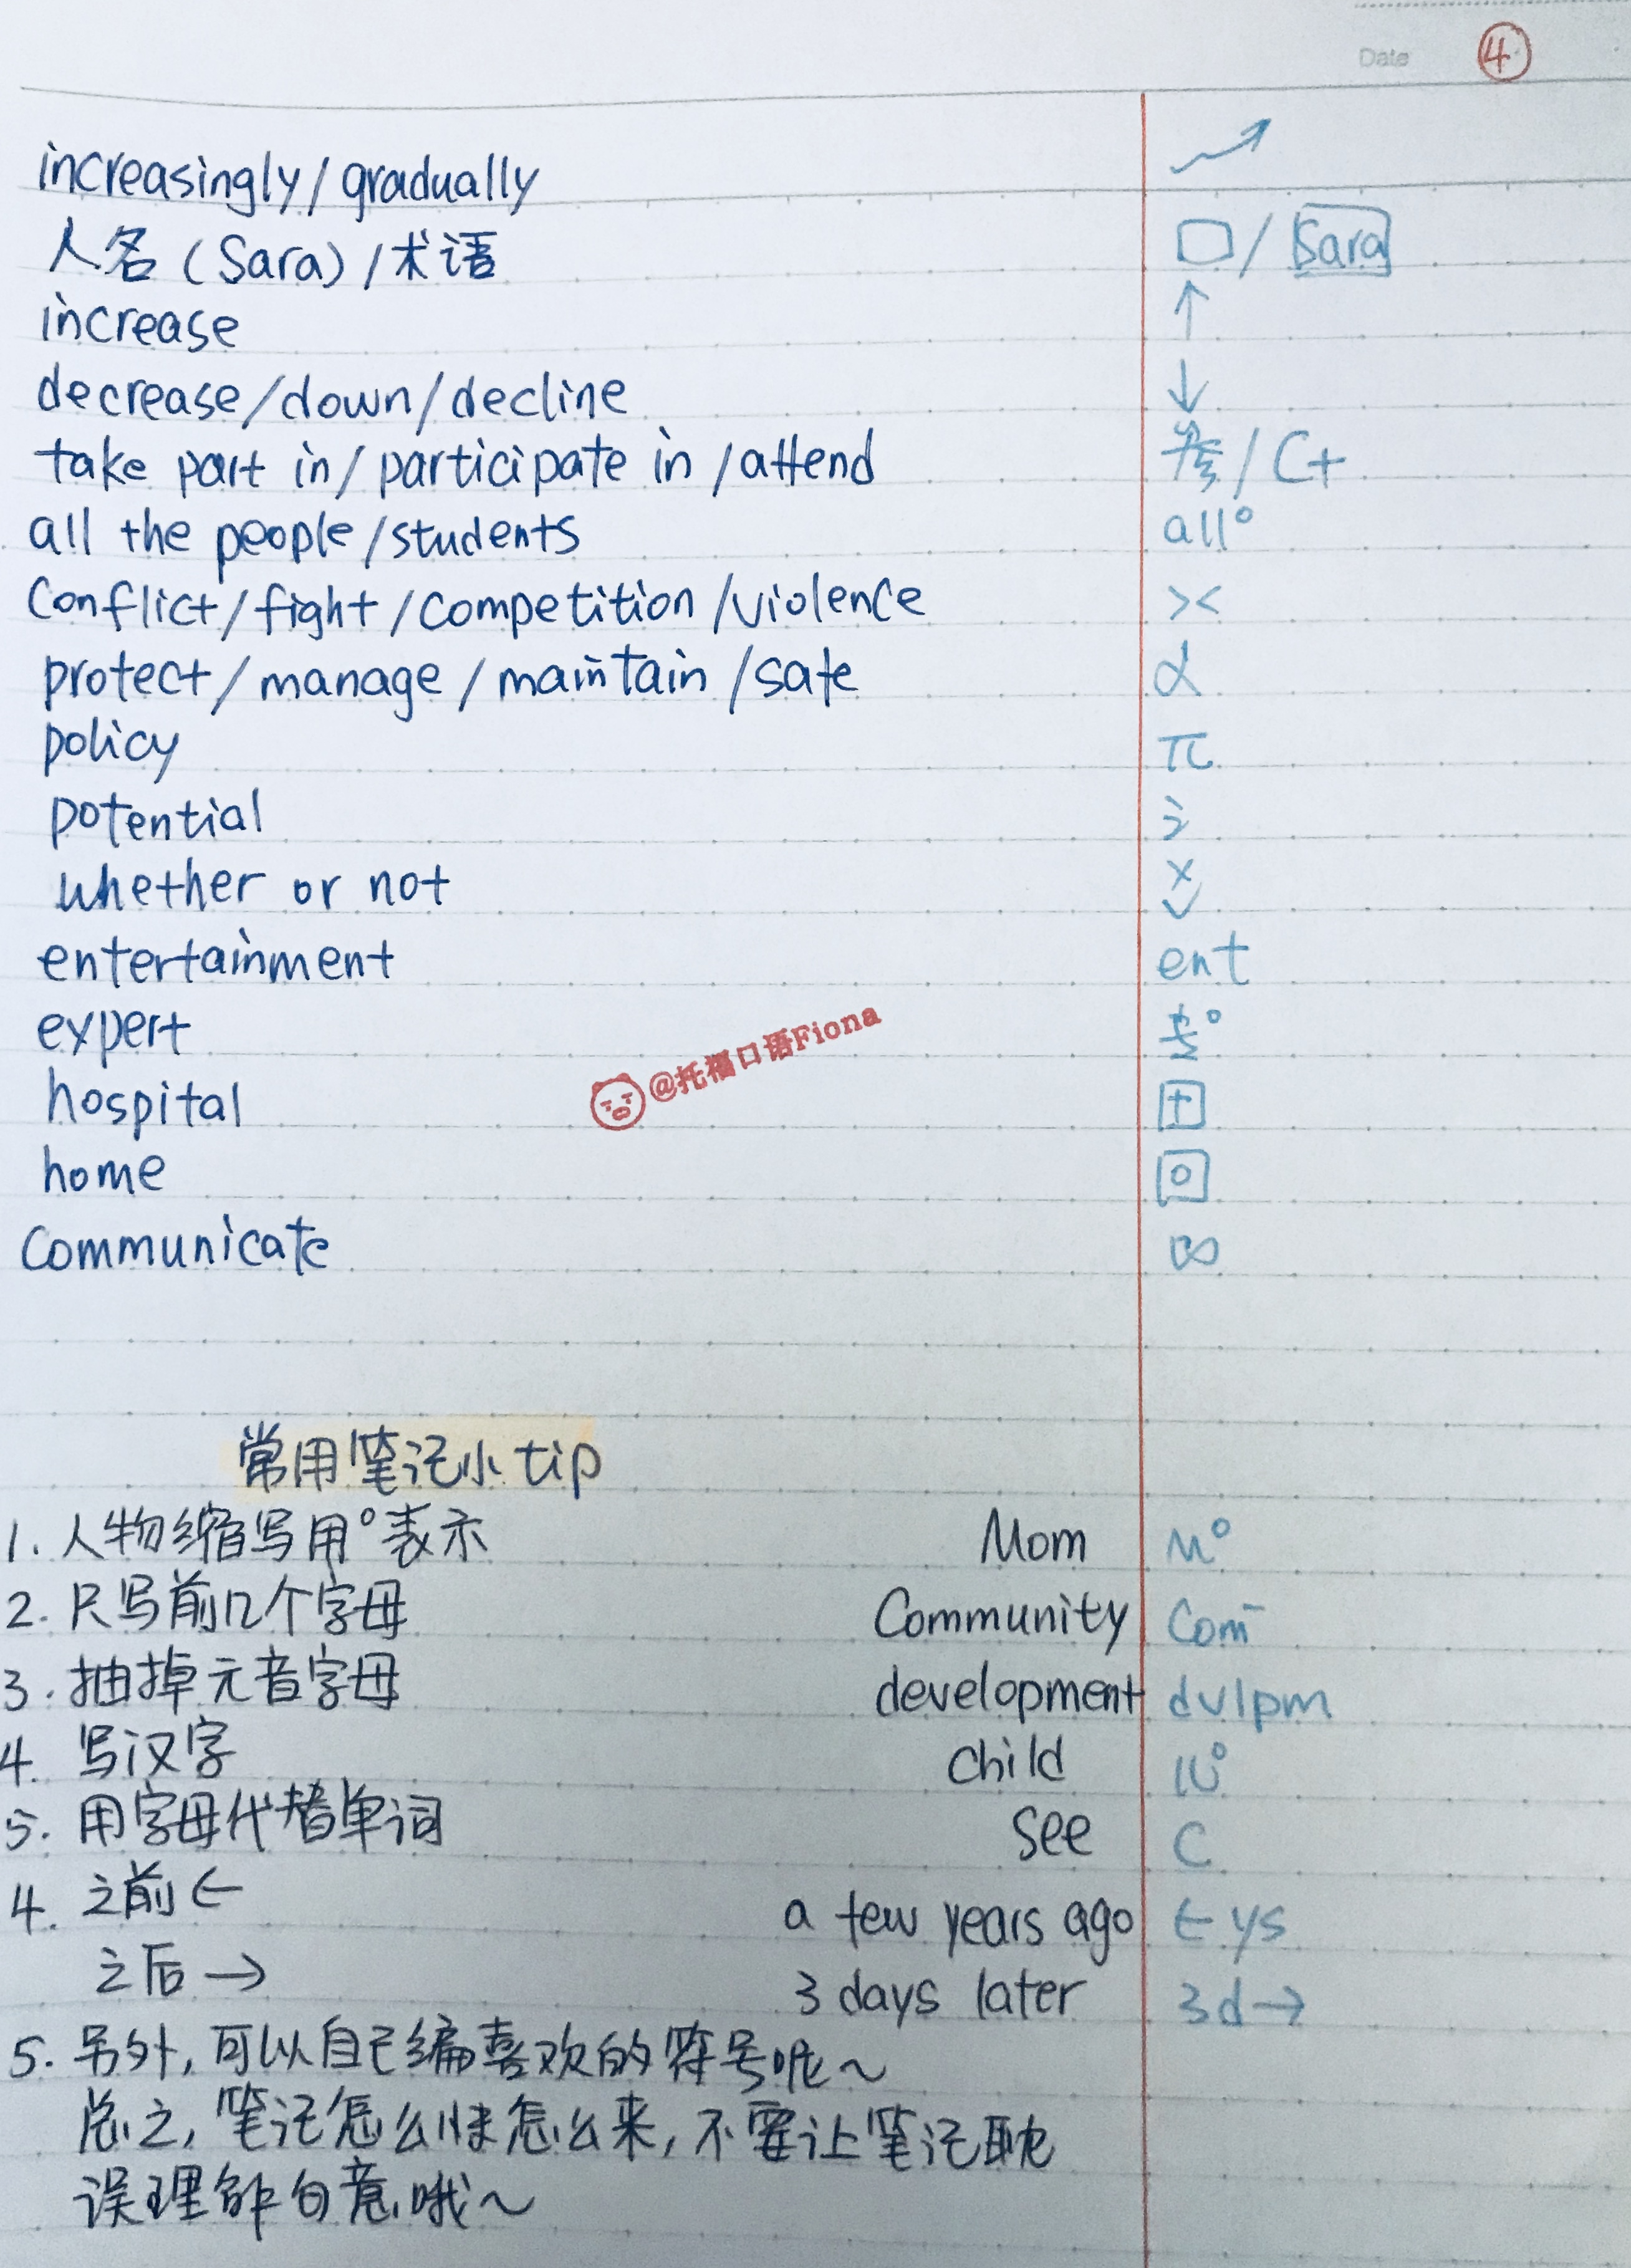 Date ④
increasingly/gradually ↗
人名(Sara)/术语 □/Sara
increase ↑
decrease/down/decline ↓
take part in/participate in/attend 参/C+
all the people/students all°
Conflict/fight/competition/violence ><
protect/manage/maintain/safe α
policy π
potential 氵
whether or not ×✓
entertainment ent
expert 专°
hospital
home
Communicate ∞
@托福口语Fiona
常用笔记小tip
1. 人物缩写用°表示 Mom M°
2. 只写前几个字母 Community Com-
3. 抽掉元音字母 development dvlpm
4. 写汉字 child 儿°
5. 用字母代替单词 see C
4. 之前 ← a few years ago ← ys
之后 → 3 days later 3d→
5. 另外,可以自己编喜欢的符号呢~
总之,笔记怎么快怎么来,不要让笔记耽
误理解句意哦~